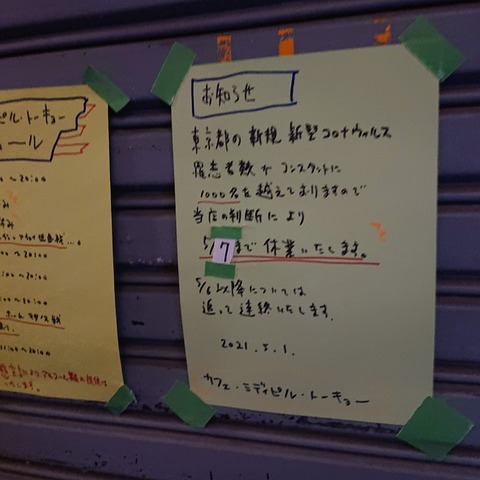 ピル・トーキョー
ュール
〜20:00
〜20:00
お知らせ
東京都の新規新型コロナウィルス
罹患者数がコンスタントに
1000名を越えておりますので
当店の判断により
5/17まで休業いたします。
5/6以降については
追って連絡いたします。
2021.5.1.
カフェ・ミディピル・トーキョー